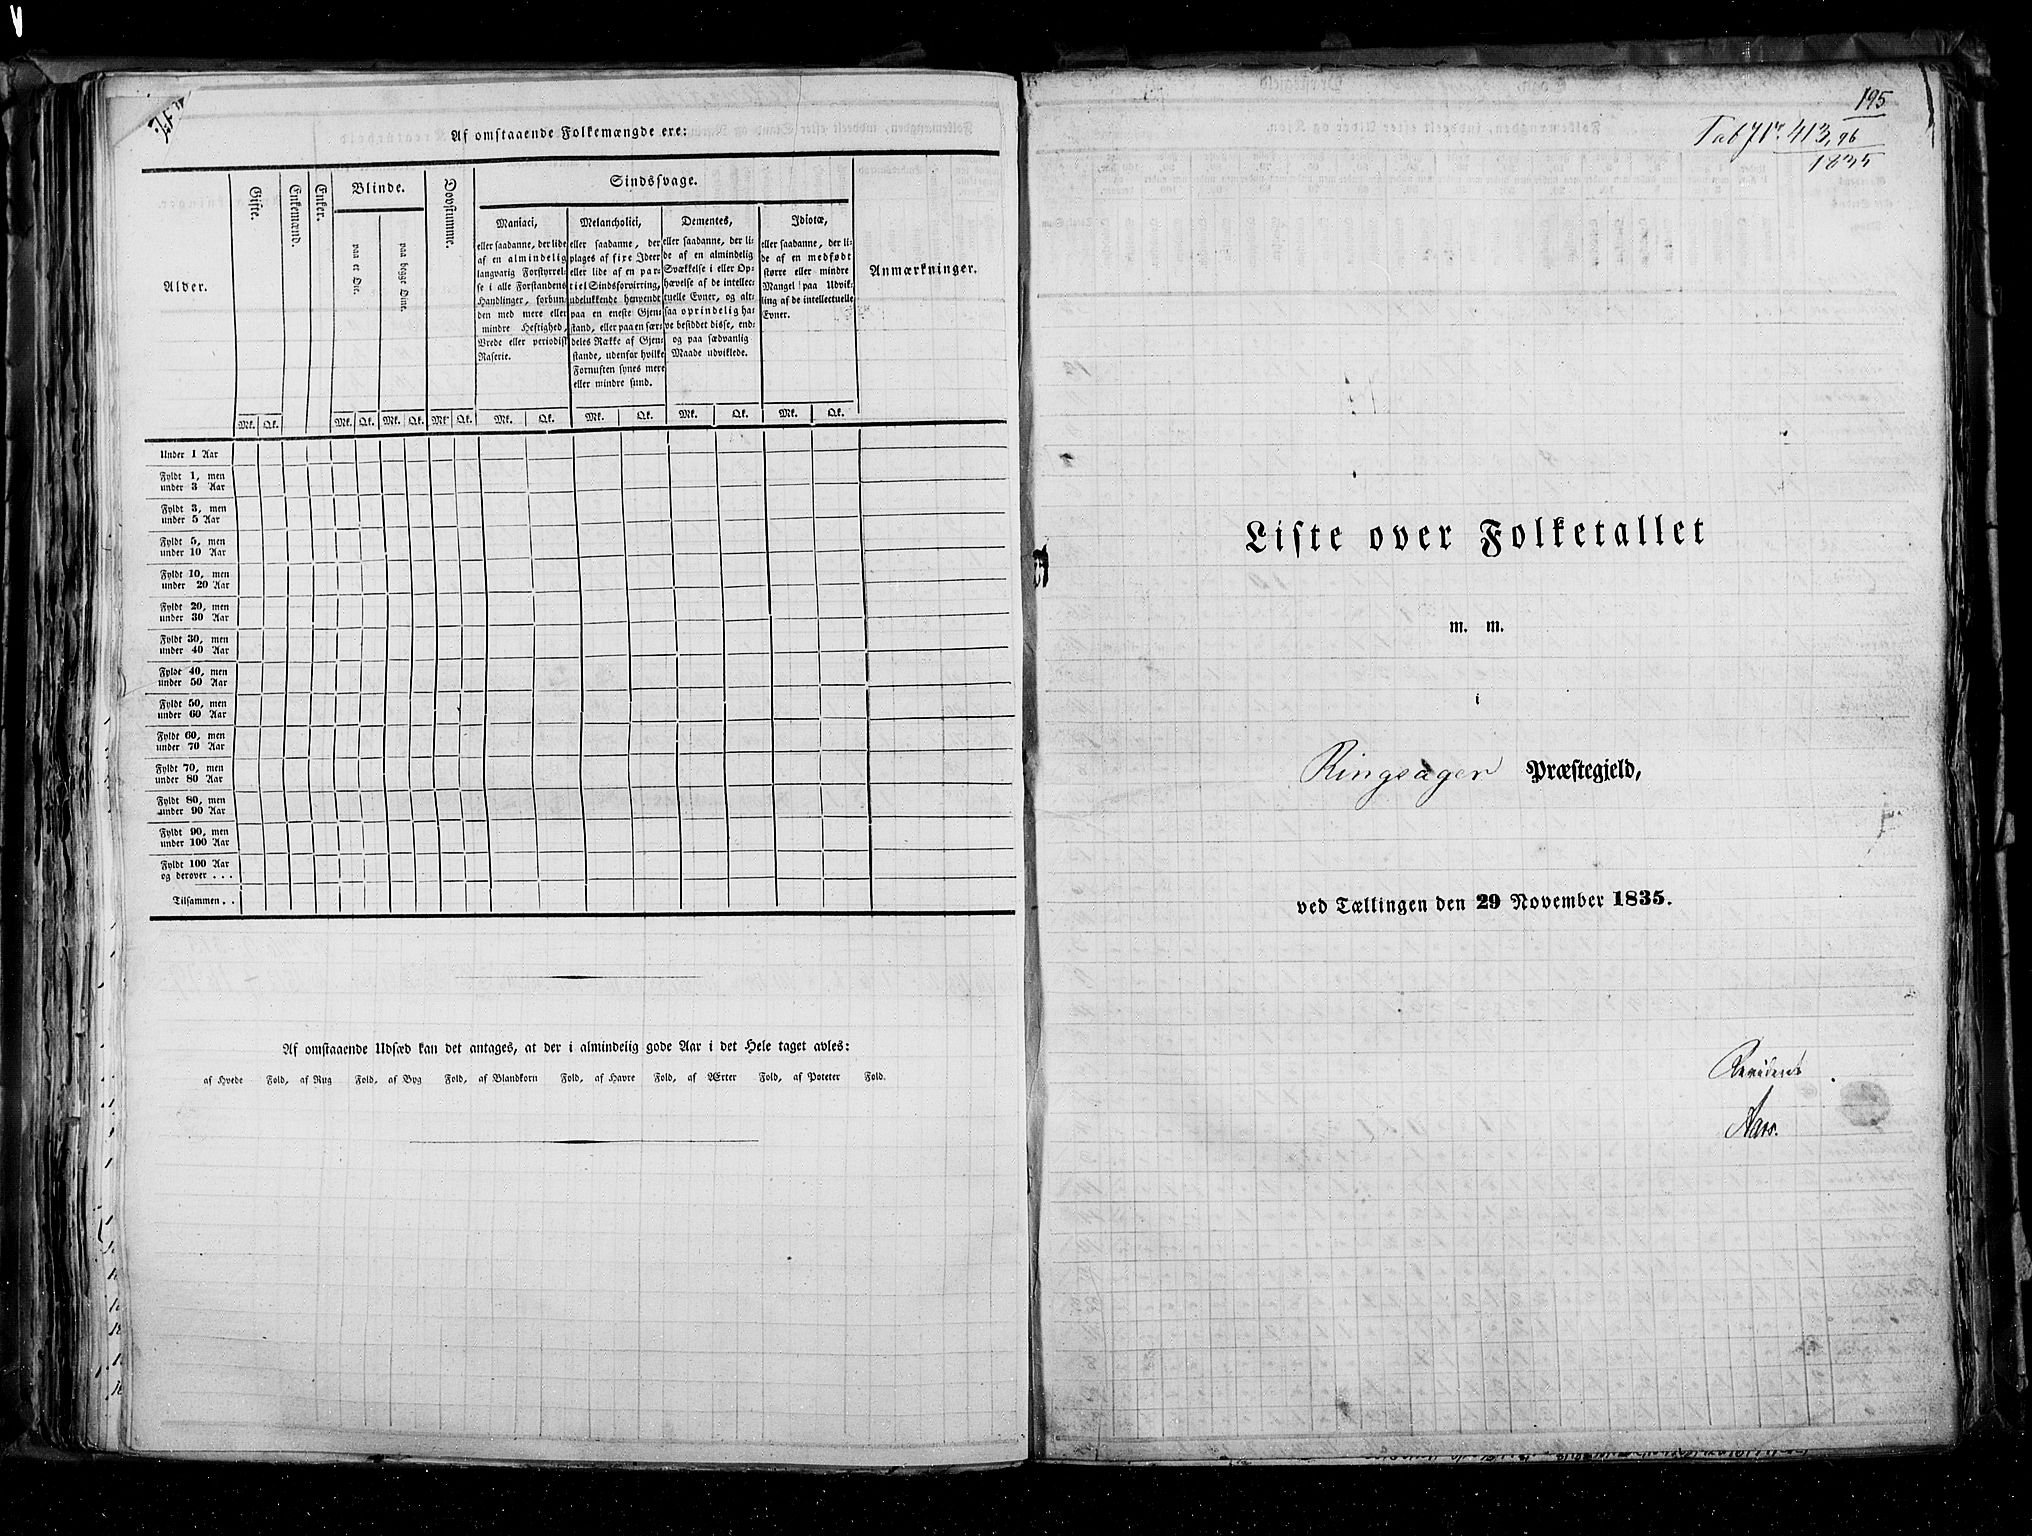 Af omstaaende Folkemængde ere:
Alder.
Gifte.
Enkemænd.
Enker.
Blinde.
paa et Øie.
paa begge Øine.
Døvstumme.
Sindssvage.
Maniaci,
eller saadanne, der lide
af en almindelig
langvarig Forstyrrel-
se i alle Forstandens
Handlinger, forbun-
den med mere eller
mindre Heftighed,
Vrede eller periodisk
Raserie.
Melancholici,
eller saadanne, der
plages af fixe Ideer
eller lide af en par-
tiel Sindsforvirring,
udelukkende henvendt
paa en eneste Gjen-
stand, eller paa en sær-
deles Række af Gjen-
stande, udenfor hvilke
Fornuften synes mere
eller mindre sund.
Dementes,
eller saadanne, der li-
de af en almindelig
Svækkelse i eller Op-
hævelse af de intellec-
tuelle Evner, og alt-
saa oprindelig ha-
ve besiddet disse, end-
og paa sædvanlig
Maade udviklede.
Idiotæ,
eller saadanne, der li-
de af en medfødt
større eller mindre
Mangel paa Udvik-
ling af de intellectuelle
Evner.
Anmærkninger.
Mk. Qk. Mk. Qk. Mk. Qk. Mk. Qk. Mk. Qk. Mk. Qk. Mk. Qk. Mk. Qk.
Under 1 Aar
Fyldt 1, men
under 3 Aar
Fyldt 3, men
under 5 Aar
Fyldt 5, men
under 10 Aar
Fyldt 10, men
under 20 Aar
Fyldt 20, men
under 30 Aar
Fyldt 30, men
under 40 Aar
Fyldt 40, men
under 50 Aar
Fyldt 50, men
under 60 Aar
Fyldt 60, men
under 70 Aar
Fyldt 70, men
under 80 Aar
Fyldt 80, men
under 90 Aar
Fyldt 90, men
under 100 Aar
Fyldt 100 Aar
og derover . . .
Tilsammen . .
Af omstaaende Udsæd kan det antages, at der i almindelig gode Aar i det Hele taget avles:
af Hvede Fold, af Rug Fold, af Byg Fold, af Blandkorn Fold, af Havre Fold, af Ærter Fold, af Poteter Fold.
195
413, 96
1835
Liste over Folketallet
m. m.
i
Ringsager Præstegjeld,
ved Tællingen den 29 November 1835.
Revideret
Aars.